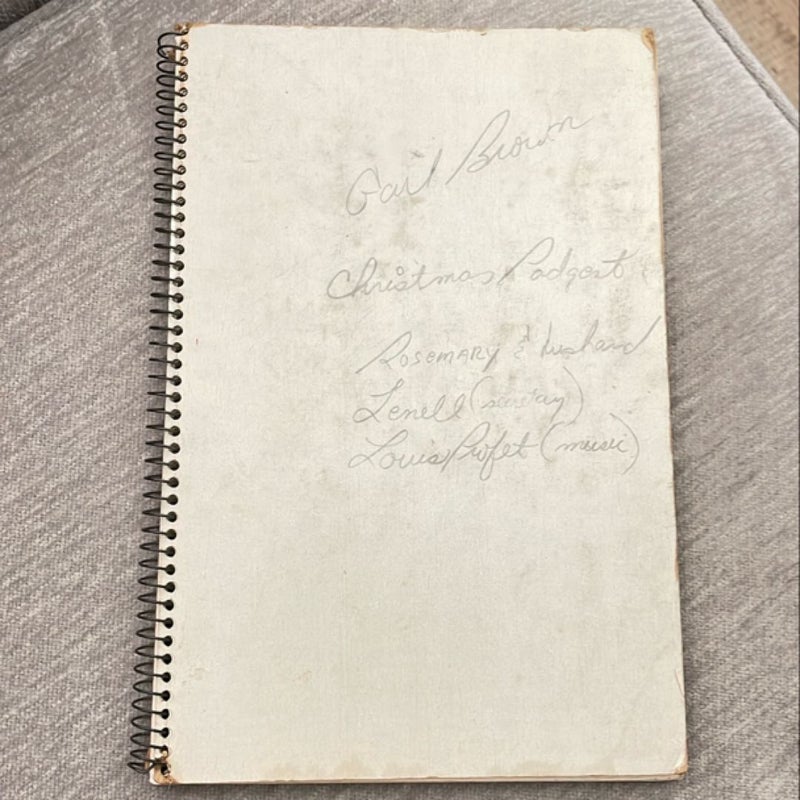 Earl Brown
Christmas Padgett
Rosemary & husband
Lenell (secretary)
Louis Profet (music)